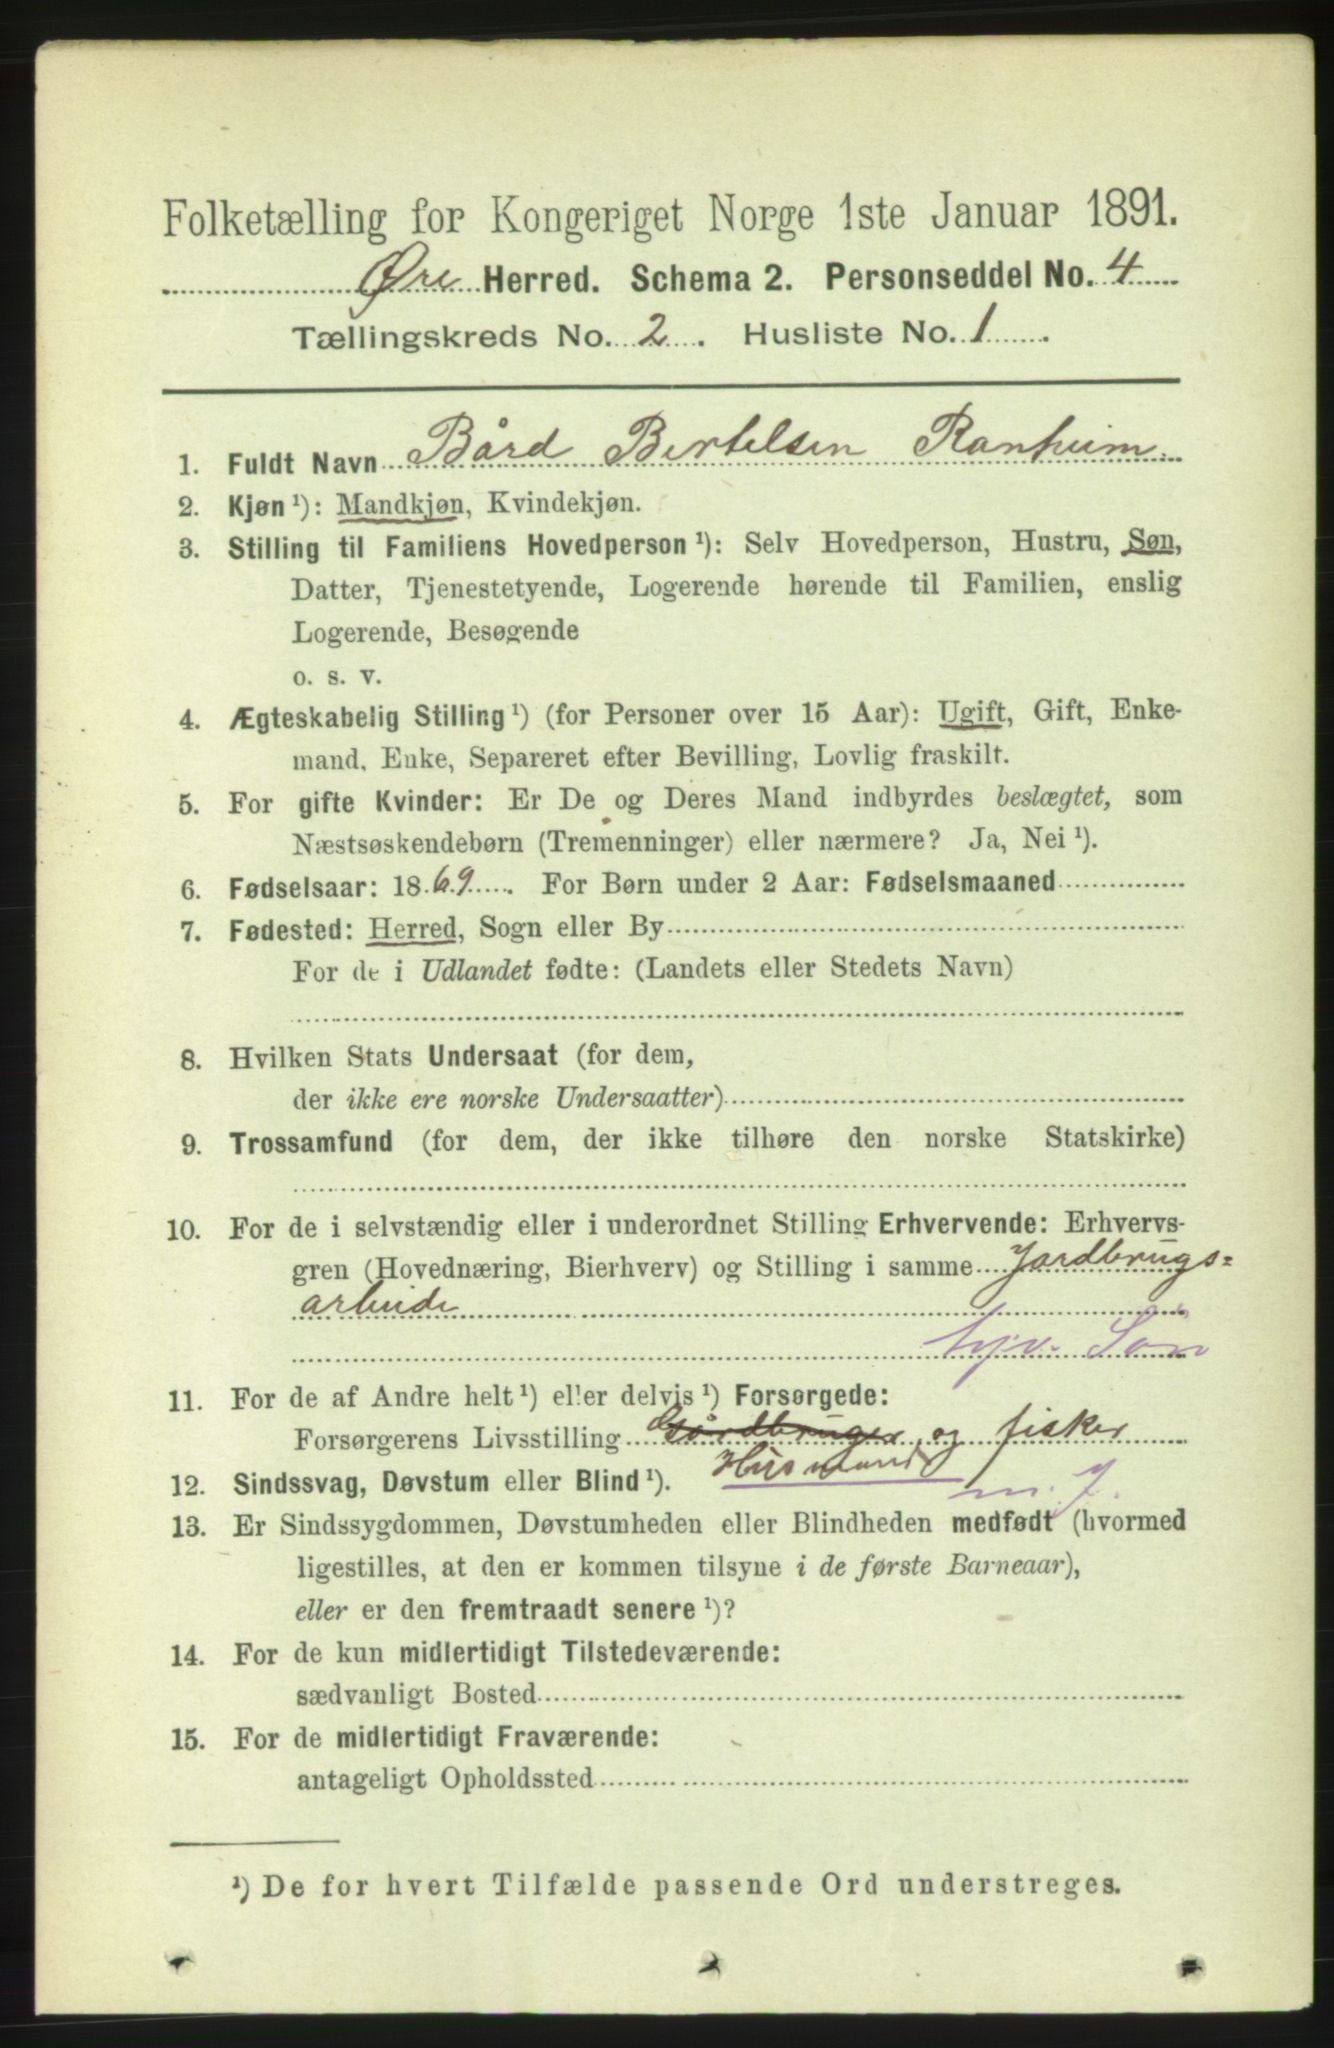 Folketælling for Kongeriget Norge 1ste Januar 1891.
Øre Herred. Schema 2. Personseddel No. 4
Tællingskreds No. 2. Husliste No. 1.
1. Fuldt Navn Bård Bertelsen Ranheim.
2. Kjøn ¹): Mandkjøn, Kvindekjøn.
3. Stilling til Familiens Hovedperson ¹): Selv Hovedperson, Hustru, Søn,
Datter, Tjenestetyende, Logerende hørende til Familien, enslig
Logerende, Besøgende
o. s. v.
4. Ægteskabelig Stilling ¹) (for Personer over 15 Aar): Ugift, Gift, Enke-
mand, Enke, Separeret efter Bevilling, Lovlig fraskilt.
5. For gifte Kvinder: Er De og Deres Mand indbyrdes beslægtet, som
Næstsøskendebørn (Tremenninger) eller nærmere? Ja, Nei ¹).
6. Fødselsaar: 1869. For Børn under 2 Aar: Fødselsmaaned
7. Fødested: Herred, Sogn eller By
For de i Udlandet fødte: (Landets eller Stedets Navn)
8. Hvilken Stats Undersaat (for dem,
der ikke ere norske Undersaatter)
9. Trossamfund (for dem, der ikke tilhøre den norske Statskirke)
10. For de i selvstændig eller i underordnet Stilling Erhvervende: Erhvervs-
gren (Hovednæring, Bierhverv) og Stilling i samme Jordbrugs=
arbeide
hjv. Søn
11. For de af Andre helt ¹) eller delvis ¹) Forsørgede:
Forsørgerens Livsstilling Gårdbruger og fisker
Husmand
m. J.
12. Sindssvag, Døvstum eller Blind ¹).
13. Er Sindssygdommen, Døvstumheden eller Blindheden medfødt (hvormed
ligestilles, at den er kommen tilsyne i de første Barneaar),
eller er den fremtraadt senere ¹)?
14. For de kun midlertidigt Tilstedeværende:
sædvanligt Bosted
15. For de midlertidigt Fraværende:
antageligt Opholdssted
¹) De for hvert Tilfælde passende Ord understreges.